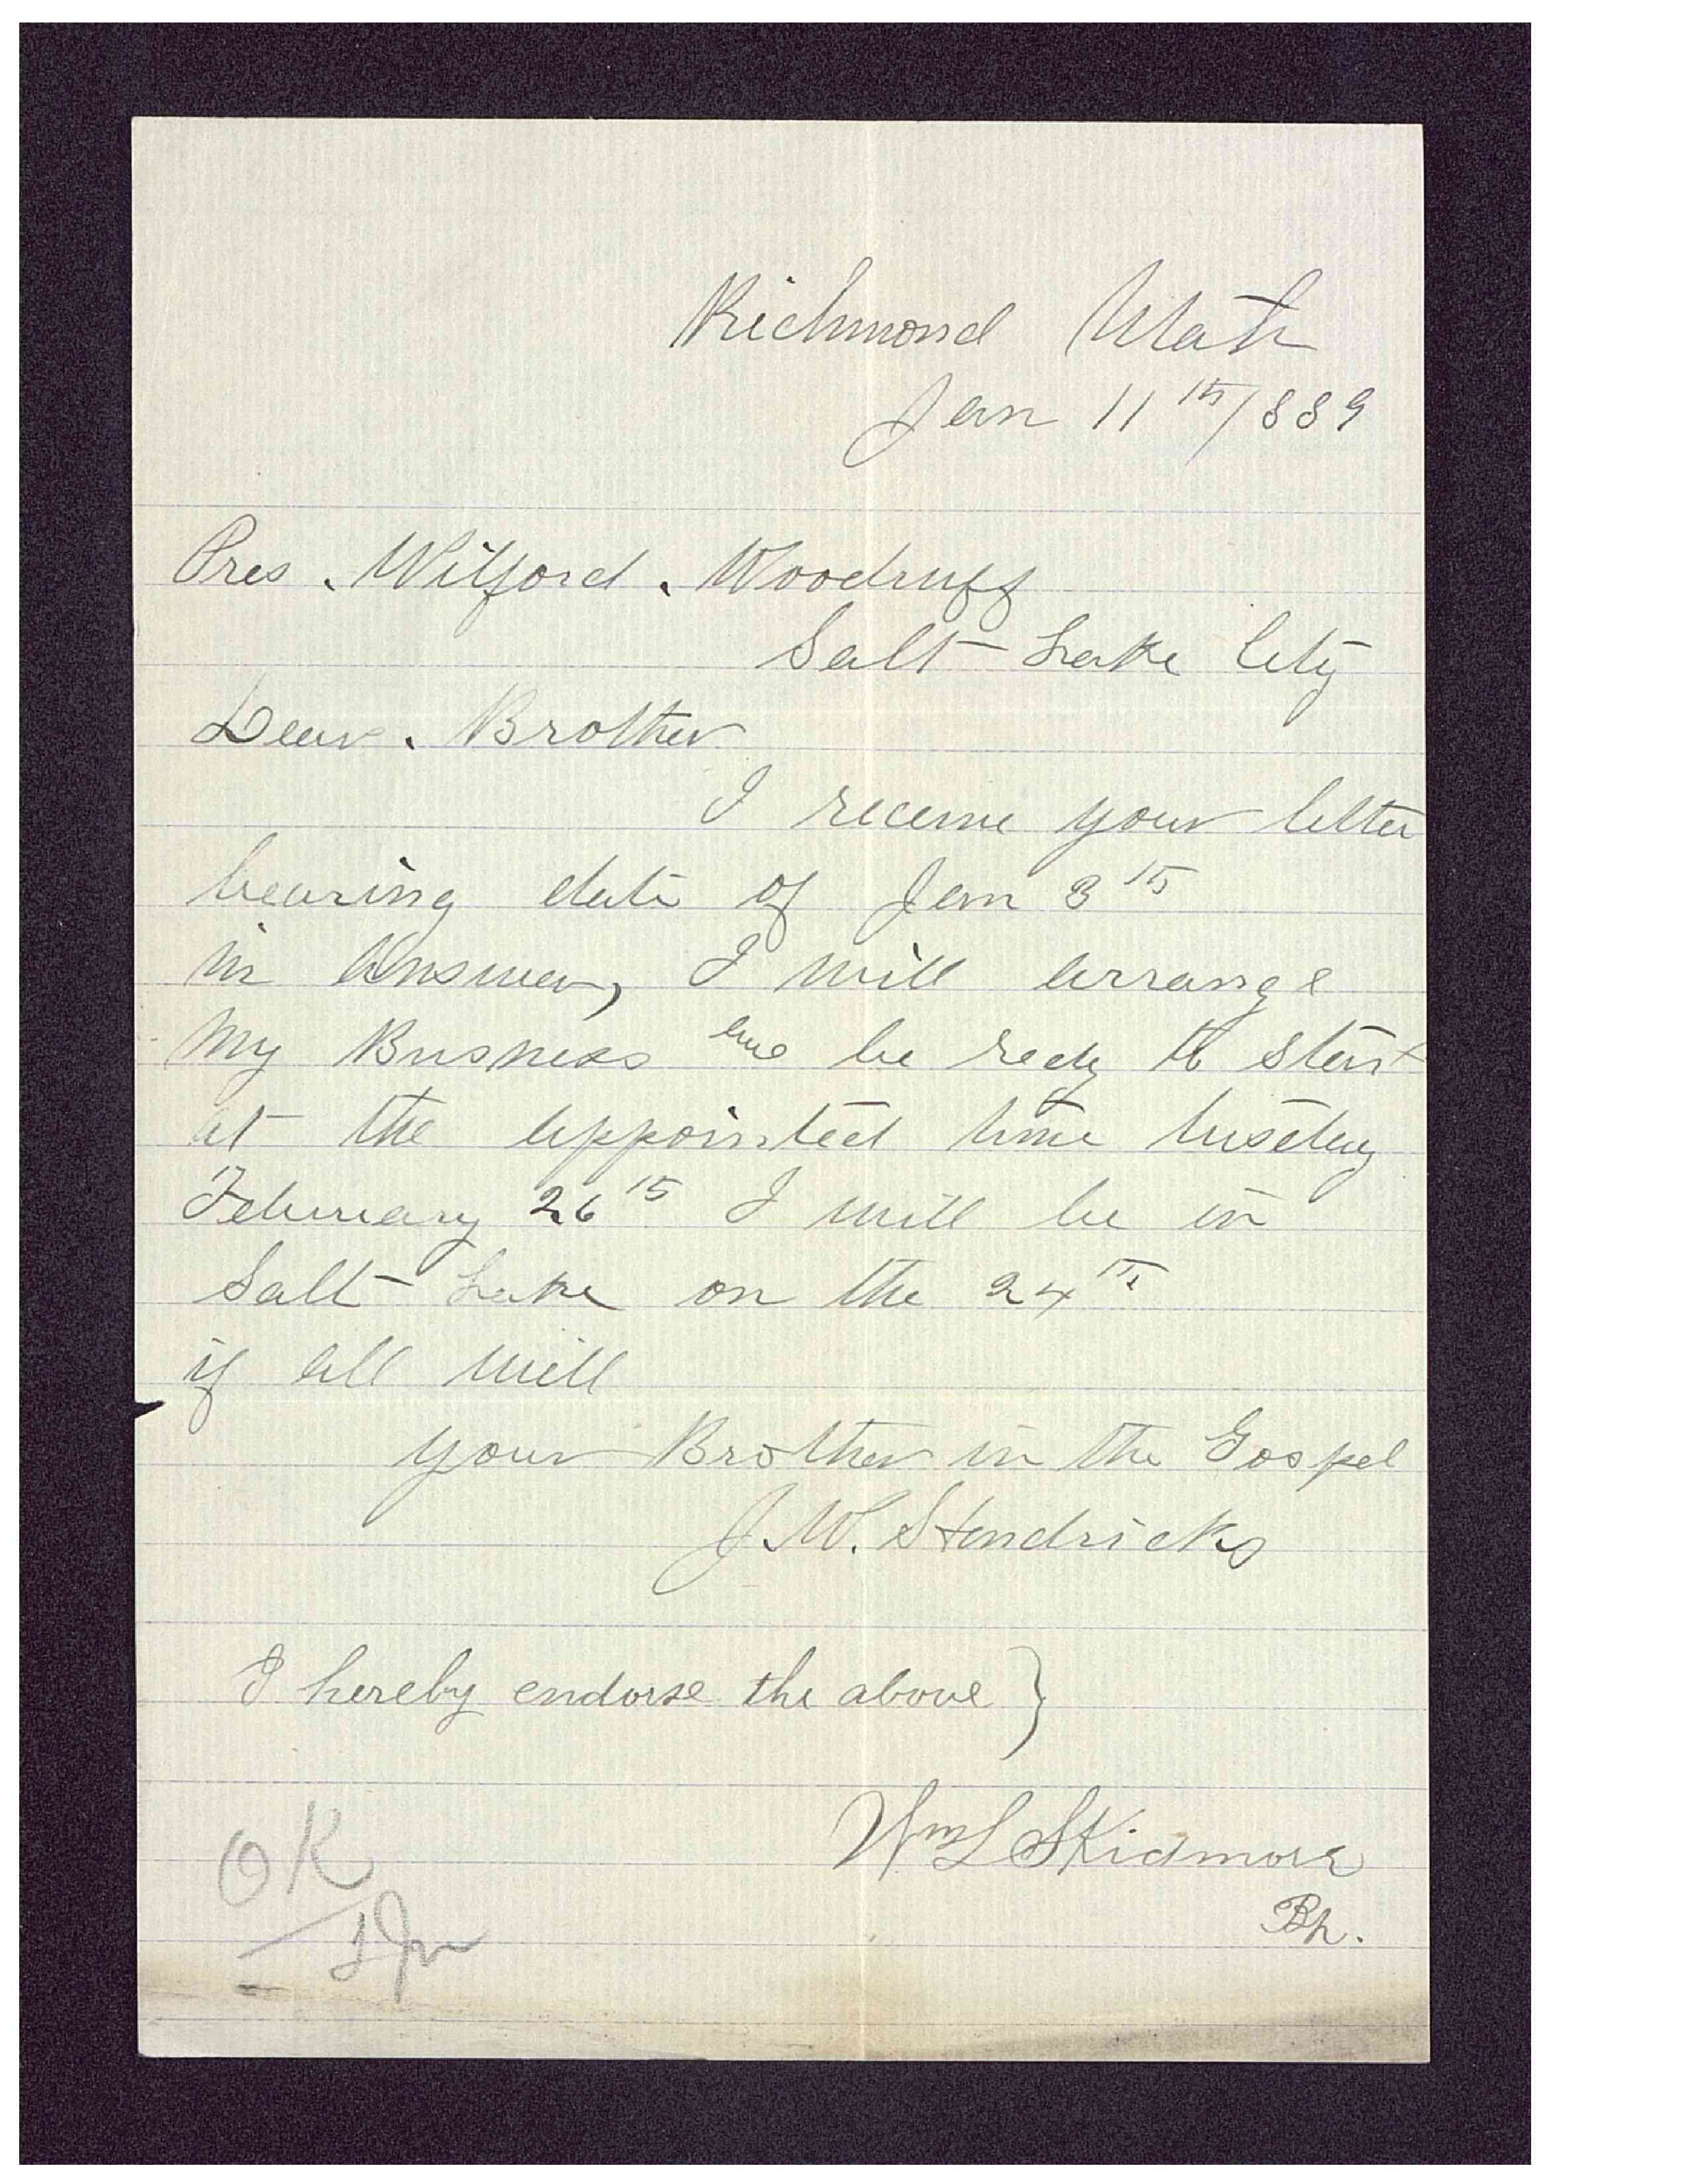 Richmond Utah
Jan 11th/889
Pres. Wilford. Woodruff
Salt Lake City
Dear. Brother
I receive your letter
bearing date of Jan 3th
in Answer, I will arrange
My Busness and be redy to start
at the appointed time tusday
February 26th I will be in
Salt Lake on the 24th
if all well
your Brother in the Gospel
J. W. Hendricks
I hereby endorse the above }
Wm L Skidmore
Bp.
OK